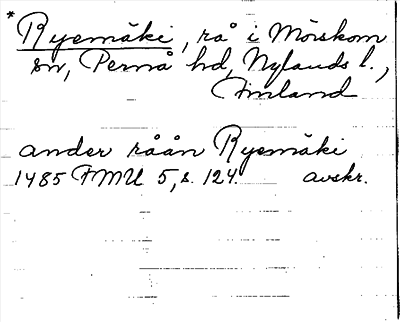 * Ryemäki, rå i Mörskom
sn, Pernå hd, Nylands l.,
Finland
ander råån Ryemäki
1485 FMU 5, s. 124. avskr.